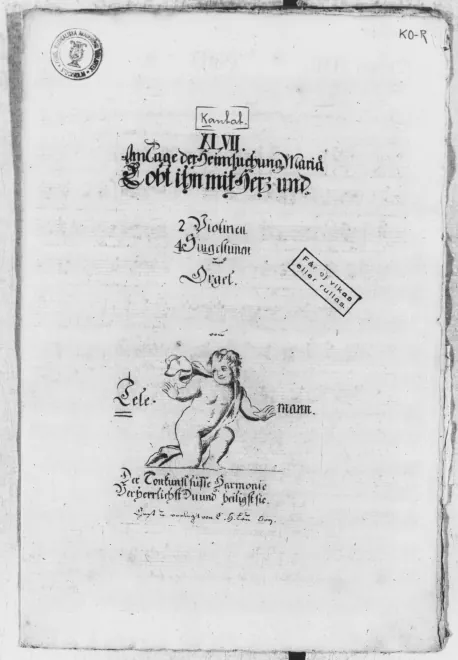 KO-R
Kantat.
XLVII.
Am Tage der Heimsuchung Mariä
Lobt ihn mit Herz und
2 Violinen
4 Singestimen
und
Orgel.
Får ej vikas
eller rullas.
von
Tele-
mann.
Der Tonkunst süsse Harmonie
Verherrlichst Du und heiligst sie.